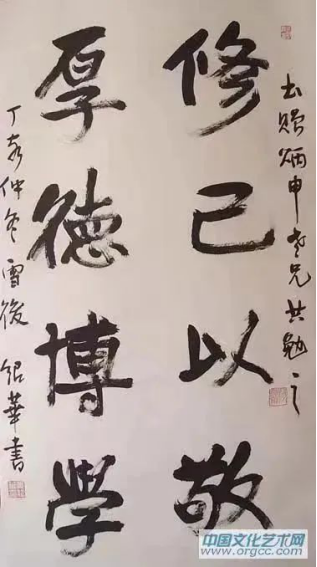 书赠炳申老兄共勉之
修己以敬
厚德博学
丁亥仲冬雪後 绍華書
中国文化艺术网
www.orgcc.com